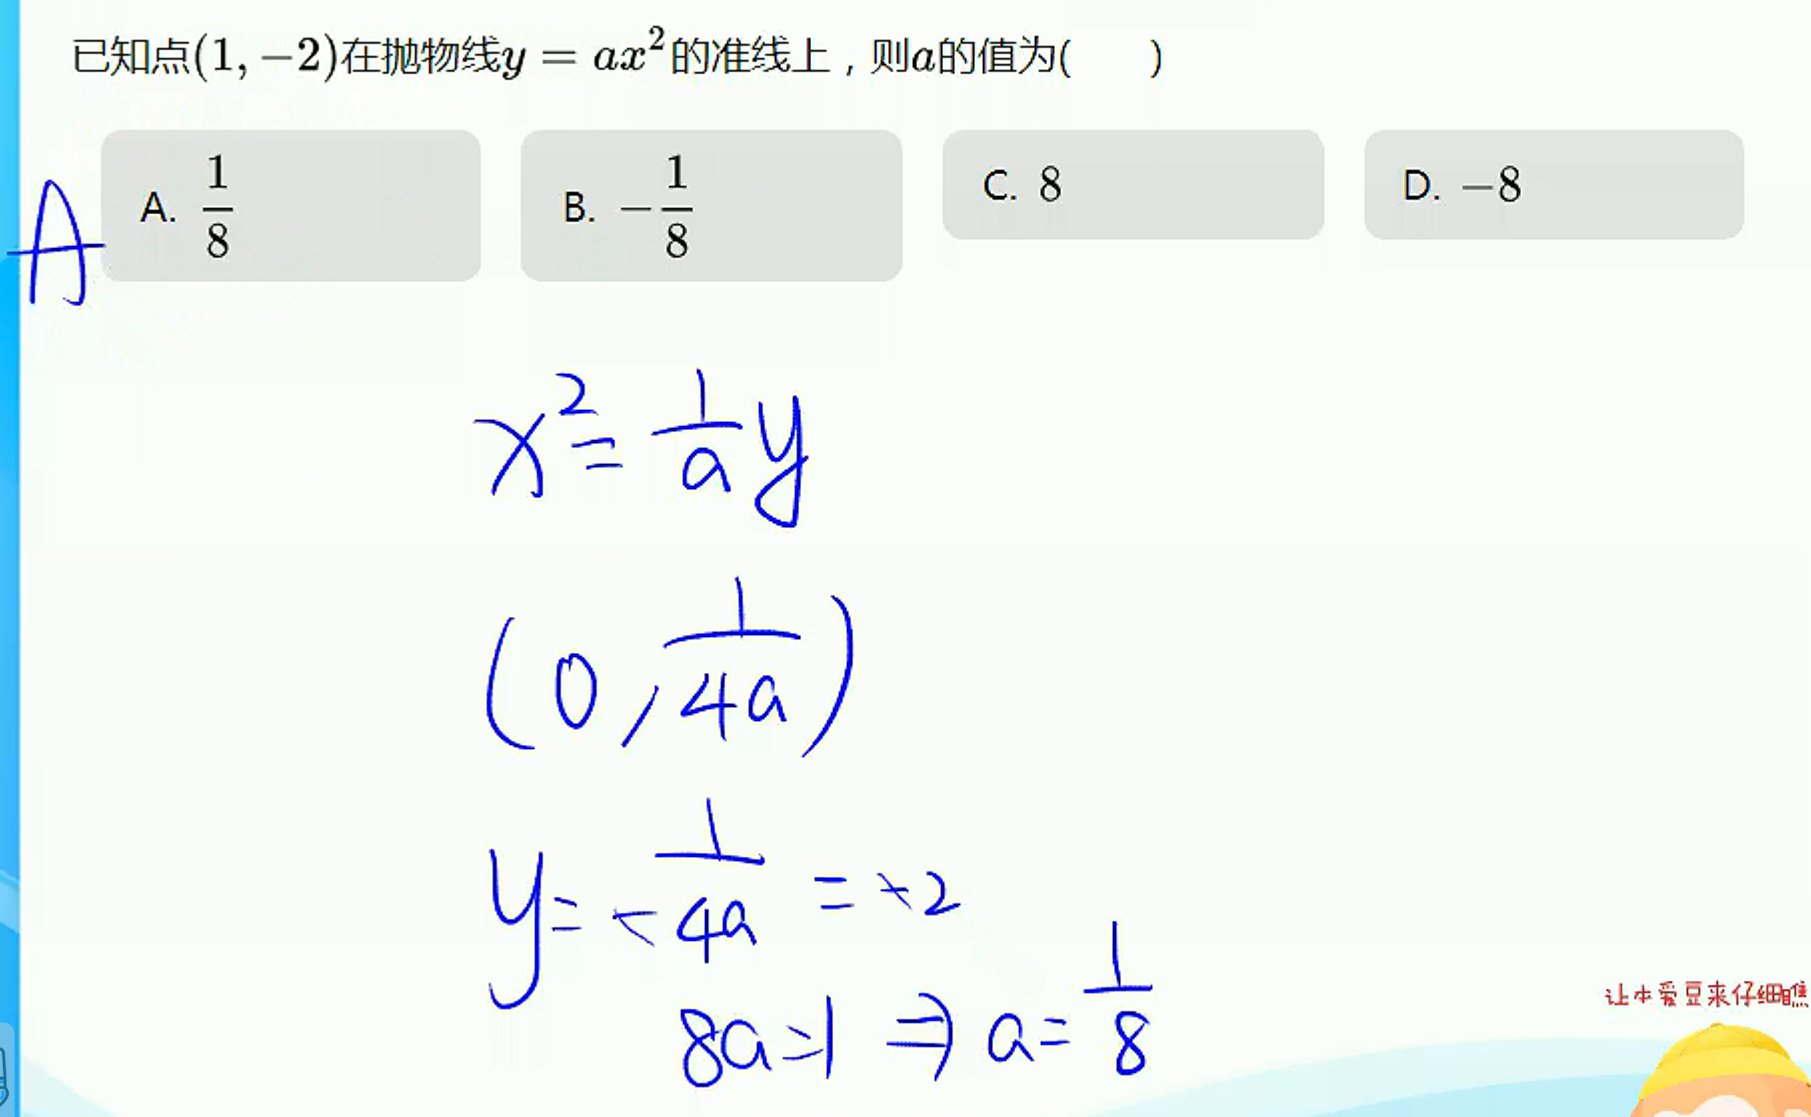 已知点(1,−2)在抛物线y = ax²的准线上，则a的值为(  )
A. 1/8 B. −1/8 C. 8 D. −8
A
x² = 1/a y
(0, 1/4a)
y = −1/4a = −2
8a=1 ⇒ a = 1/8
让本爱豆来仔细瞧